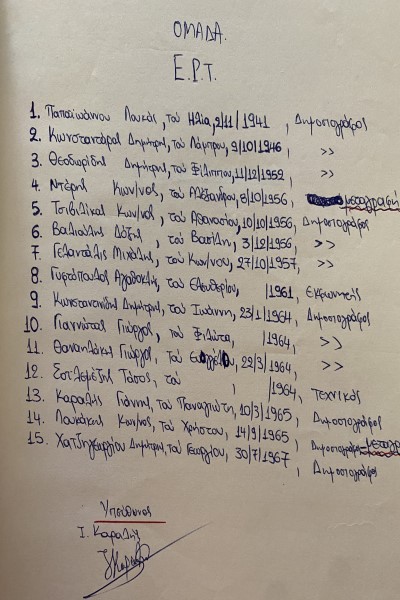 ΟΜΑΔΑ.
Ε.Ρ.Τ.
1. Παπαϊωάννου Λουκάς, του Ηλία, 2/11/1941, Δημοσιογράφος
2. Κωνσταντάρας Δημήτρης, του Λάμπρου, 9/10/1946, >>
3. Θεοδωρίδης Δημήτρης, του Φίλιππου, 11/12/1952, >>
4. Ντέρης Κων/νος, του Αλέξανδρου, 8/10/1956,
5. Τσιβιλίκας Κων/νος, του Αθανασίου, 10/10/1956, Δημοσιογράφος
6. του Βασίλη, 3/12/1956, >>
7. Μιχάλης, του Κων/νου, 27/10/1957, >>
8. του Ελευθερίου, /1961, Εκφωνητής
9. Κωνσταντινίδης Δημήτρης, του Ιωάννη, 23/1/1964, Δημοσιογράφος
10. Γιαννώτας Γιώργος, του Φιλώτα, /1964, >>
11. Θαναηλάκης Γιώργος, του 22/3/1964, >>
12. Τάσος, του , /1964, Τεχνικός
13. Καραλής Γιάννης, του Παναγιώτη, 10/3/1965, Δημοσιογράφος
14. Λουκάκης Κων/νος, του Χρήστου, 14/9/1965, Δημοσιογράφος
15. Χατζηγεωργίου Δημήτρης, του Γεωργίου, 30/7/1967, Δημοσιογράφος
Υπεύθυνος
Ι. Καραλής